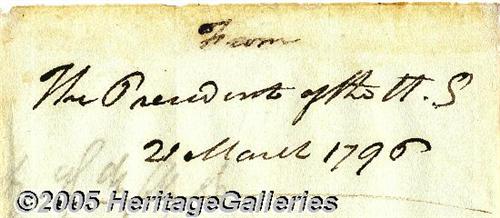 From
The President of the U.S
21 March 1796
© 2005 HeritageGalleries